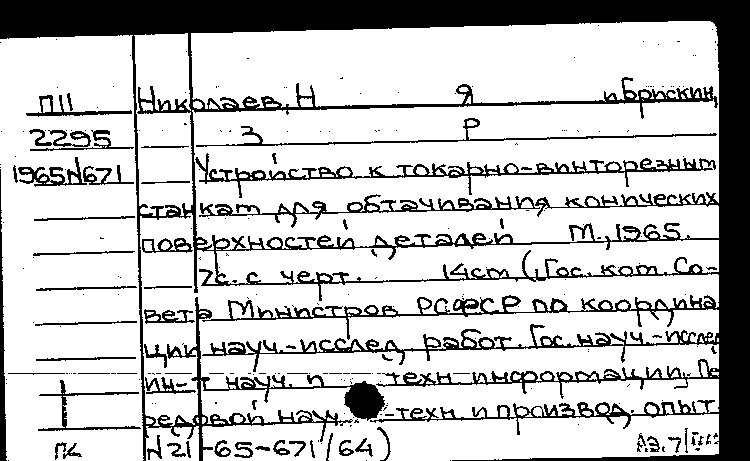 П11 Николаев, Н Я и Брискин,
2295 З Р
1965N671 Устройство к токарно-винторезным
станкам для обтачивания конических
поверхностей деталей М., 1965.
7с. с черт. 14см (Гос. ком. Со-
вета Министров РСФСР по координа
ции науч.-исслед. работ. Гос. науч.-исслед
ин-т науч. и техн. информации. Пе
редовой науч -техн. и производ. опыт
N21-65-671/64)